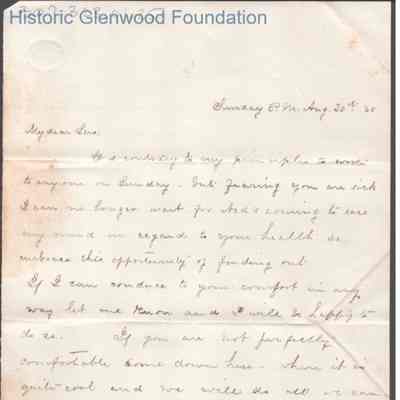 Historic Glenwood Foundation
Sunday P.M. Aug. 30th 80
My dear
It is contrary to my principles to write
to anyone on Sunday. but fearing you are sick
I can no longer wait for coming to ease
my mind in regard to your health so
embrace this opportunity of finding out.
If I can conduce to your comfort in any
way let me know and I will be happy to
do so. If you are not perfectly
comfortable come down here - where it is
quite cool and we will do all we can